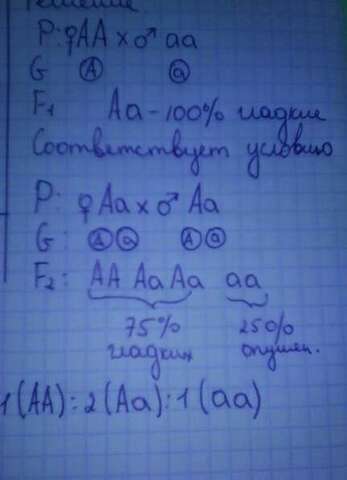 Решение
P: ♀AA x ♂ aa
G (A) (a)
F1 Aa - 100% гладкие
Соответствует условию
P: ♀ Aa x ♂ Aa
G: (A)(a) (A)(a)
F2: AA Aa Aa aa
75% 25%
гладких опушен.
1(AA):2(Aa):1(aa)